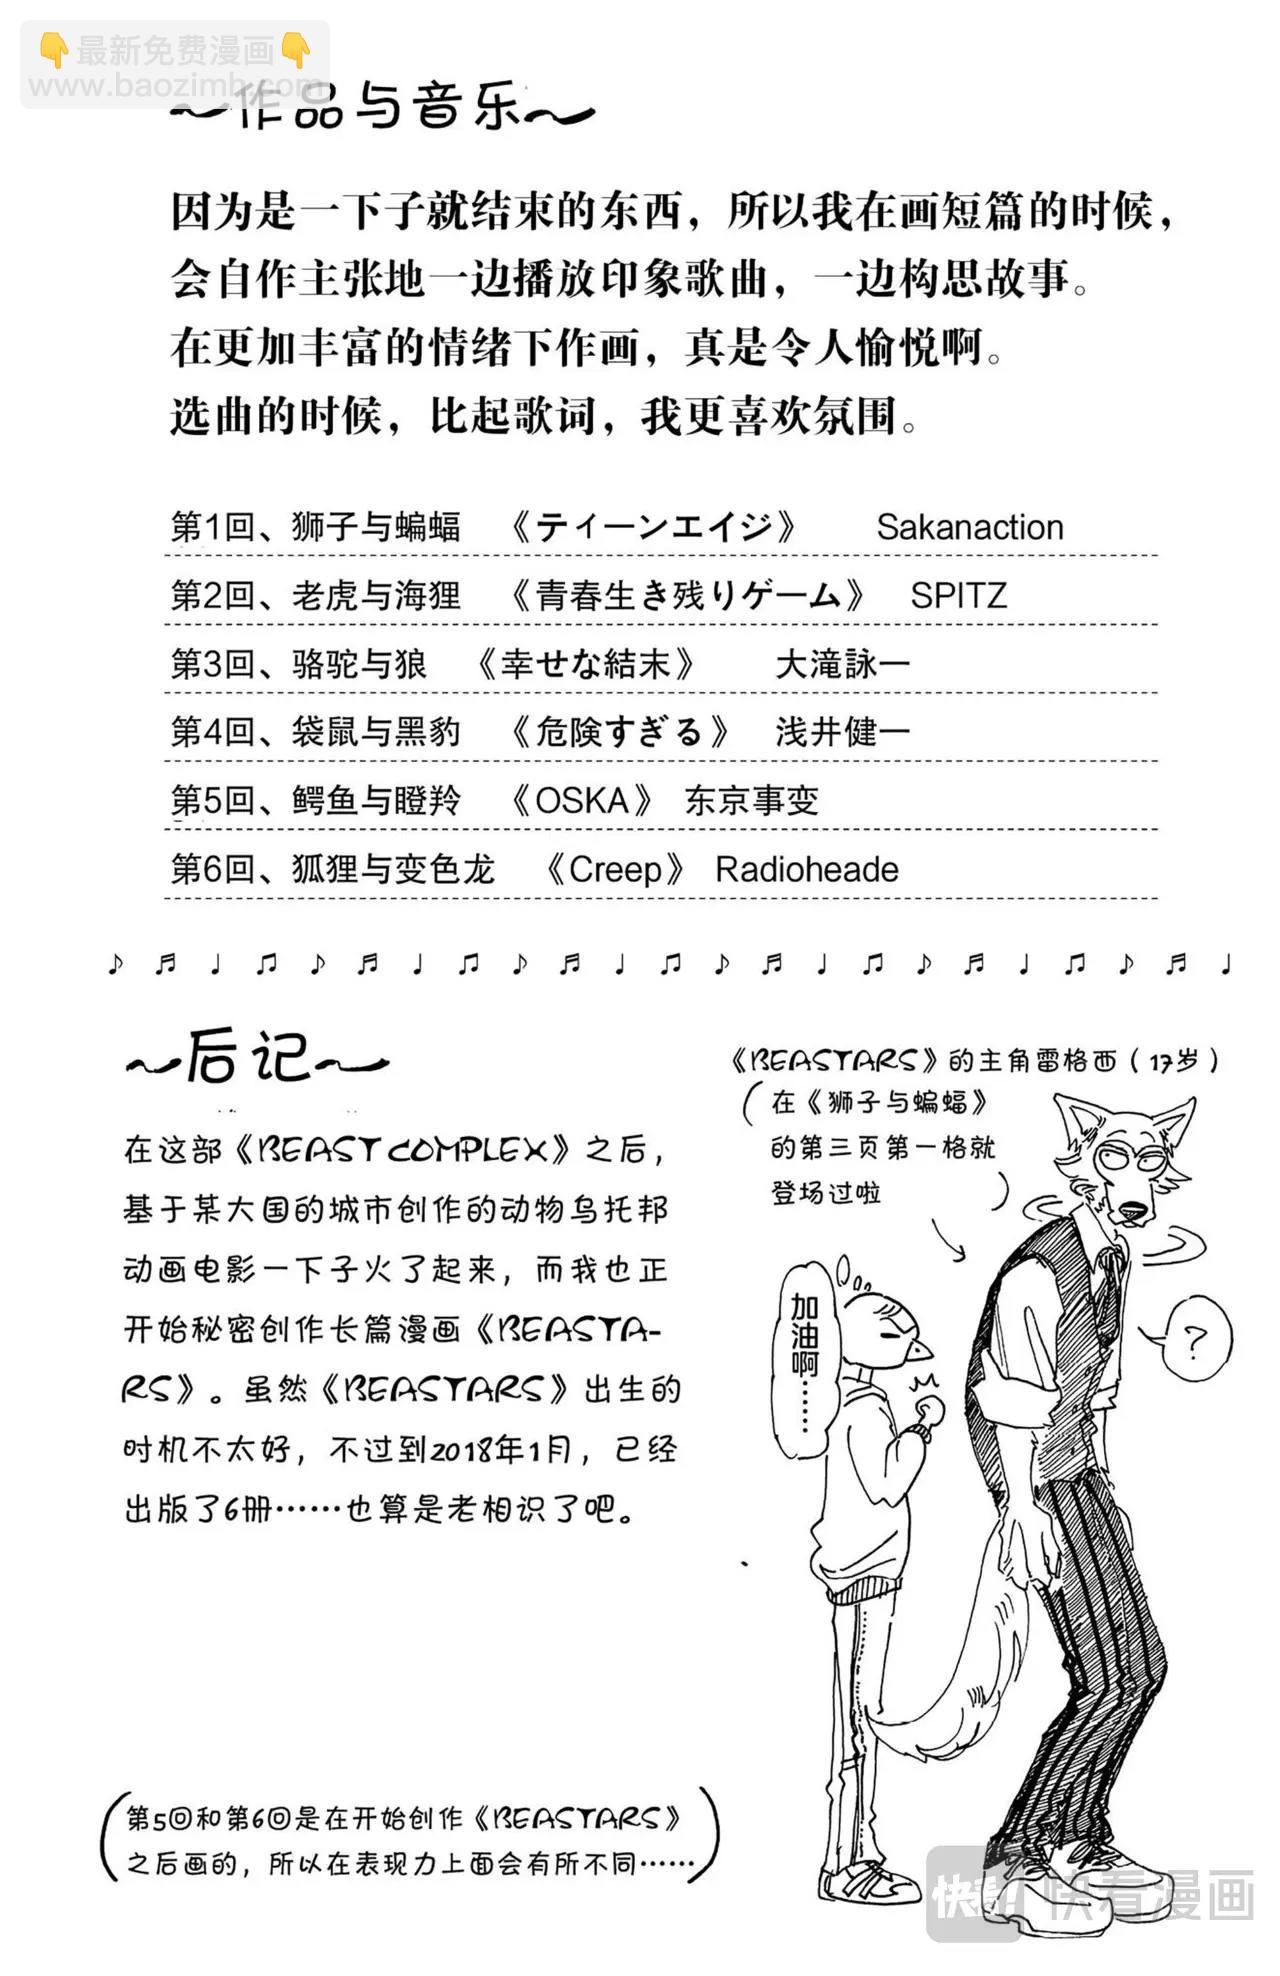 👇最新免费漫画👇
www.baozimh.com
~作品与音乐~
因为是一下子就结束的东西，所以我在画短篇的时候，
会自作主张地一边播放印象歌曲，一边构思故事。
在更加丰富的情绪下作画，真是令人愉悦啊。
选曲的时候，比起歌词，我更喜欢氛围。
第1回、狮子与蝙蝠 《ティーンエイジ》 Sakanaction
第2回、老虎与海狸 《青春生き残りゲーム》 SPITZ
第3回、骆驼与狼 《幸せな結末》 大滝詠一
第4回、袋鼠与黑豹 《危険すぎる》 浅井健一
第5回、鳄鱼与瞪羚 《OSKA》 东京事变
第6回、狐狸与变色龙 《Creep》 Radioheade
~后记~
在这部《BEAST COMPLEX》之后，
基于某大国的城市创作的动物乌托邦
动画电影一下子火了起来，而我也正
开始秘密创作长篇漫画《BEASTA-
RS》。虽然《BEASTARS》出生的
时机不太好，不过到2018年1月，已经
出版了6册……也算是老相识了吧。
《BEASTARS》的主角雷格西（17岁）
（在《狮子与蝙蝠》
的第三页第一格就
登场过啦）
加油啊……
?
（第5回和第6回是在开始创作《BEASTARS》
之后画的，所以在表现力上面会有所不同……）
快看!
快看漫画